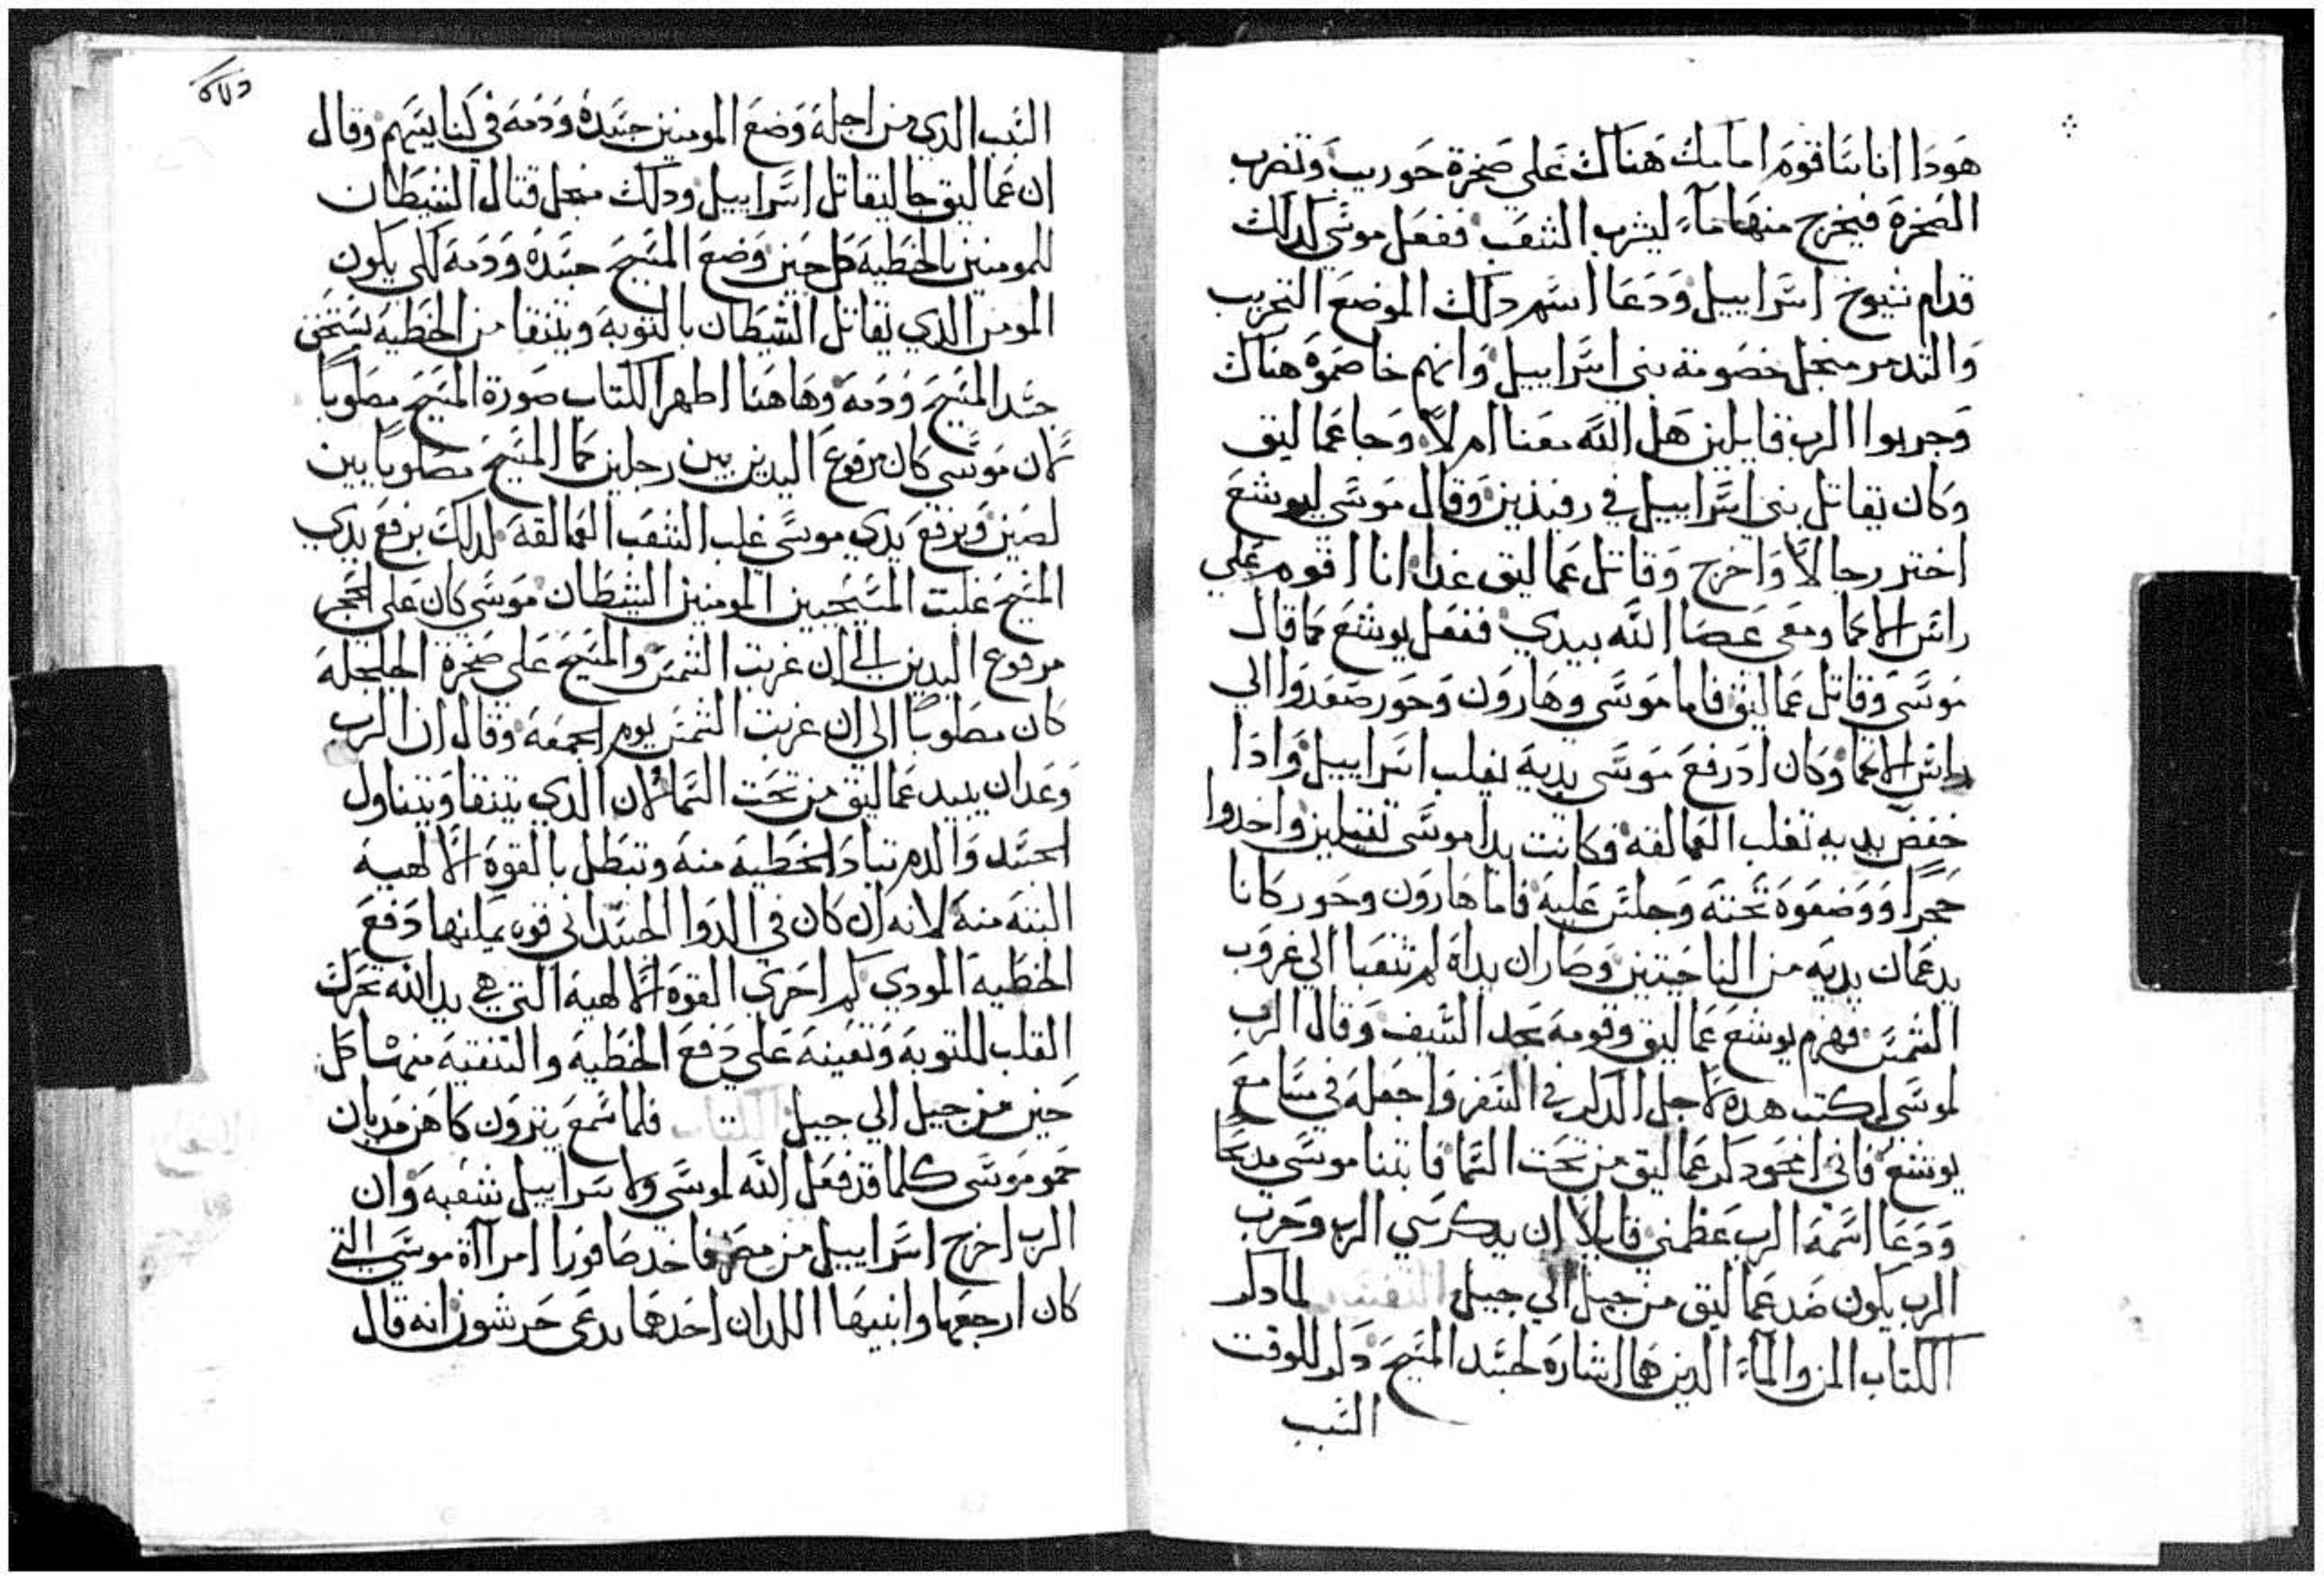 هودا انا ساقوم امامك هناك علي صخرة حوريب وتضرب
الصخرة فيخرج منها مآء ليشرب الشعب ففعل موسي كذلك
قدام شيوخ اسراييل ودعا اسم دلك الموضع التجريب
والتدمر منجل خصومة بني اسراييل وانهم خاصموه هناك
وجربوا الرب قايلين هل الله معنا ام لا وجا عماليق
وكان يقاتل بني اسراييل في رفيذين وقال موسي ليوشع
اختر رجالا واخرج وقاتل عماليق غدا انا اقوم علي
راس الاكما ومعي عصا الله بيدي ففعل يوشع كما قال
موسي وقاتل عماليق فاما موسي وهارون وحور صعدوا الي
راس الاكما وكان اد رفع موسي يديه يغلب اسراييل وادا
خفض يديه تغلب العمالقة وكانت يدا موسي ثقيلين واخدوا
حجرا ووضعوه تحته وجلس عليه فاما هارون وحور كانا
يدعمان يديه من الناحيتين وصار ان يداه لم تتعبا الي غروب
الشمس فهزم يوشع عماليق وقومه بحد السيف وقال الرب
لموسي اكتب هده لاجل الدكر في السفر واجعله في مسامع
يوشع فاني امحو دكر عماليق من تحت السما فابتنا موسي مدبحا
ودعا اسمه الرب عظمني قايلا ان يد كرسي الرب وحرب
الرب يكون ضد عماليق من جيل الي جيل لما دكر
الكتاب المن والمآء الدين هما اشارة لجسد المسيح دكر للوقت
السبب
السبب الدي من اجله وضع المومنين جسده ودمه في كنايسهم وقال
ان عماليق جا ليقاتل اسراييل ودلك منجل قتال الشيطان
للمومنين بالخطية كل حين وضع المسيح جسده ودمه لكي يكون
المومن الدي يقاتل الشيطان بالتوبة ويتنقا من الخطية يستحق
جسد المسيح ودمه وهاهنا اظهر الكتاب صورة المسيح مصلوبا
لان موسي كان مرفوع اليدين بين رجلين كما المسيح مصلوبا بين
لصين وبرفع يدي موسي غلب الشعب العمالقة لدلك برفع يدي
المسيح غلبت المسيحيين المومنين الشيطان موسي كان علي الحجر
مرفوع اليدين الي ان غربت الشمس والمسيح علي صخرة الجلجلة
كان مصلوبا الي ان غربت الشمس يوم الجمعة وقال ان الرب
وعد ان يبيد عماليق من تحت السما لان الدي يتنقا ويتناول
الجسد والدم تباد الخطية منه وتبطل بالقوة الالهية
البتة منه لانه ان كان في الدوا الجسداني قوه يمكنها دفع
الخطية المودي كم احري القوة الالهية التي هي يد الله تحرك
القلب للتوبة وتعينه علي دفع الخطية والتنقية منها كل
حين من جيل الي جيل فلما سمع يترون كاهن مديان
حمو موسي كلما قد فعل الله لموسي ولاسراييل شعبه وان
الرب اخرج اسراييل من مصر فاخد صافورا امراآة موسي التي
كان ارجعها وابنيها اللدان احدهما يدعي جرشون انه قال